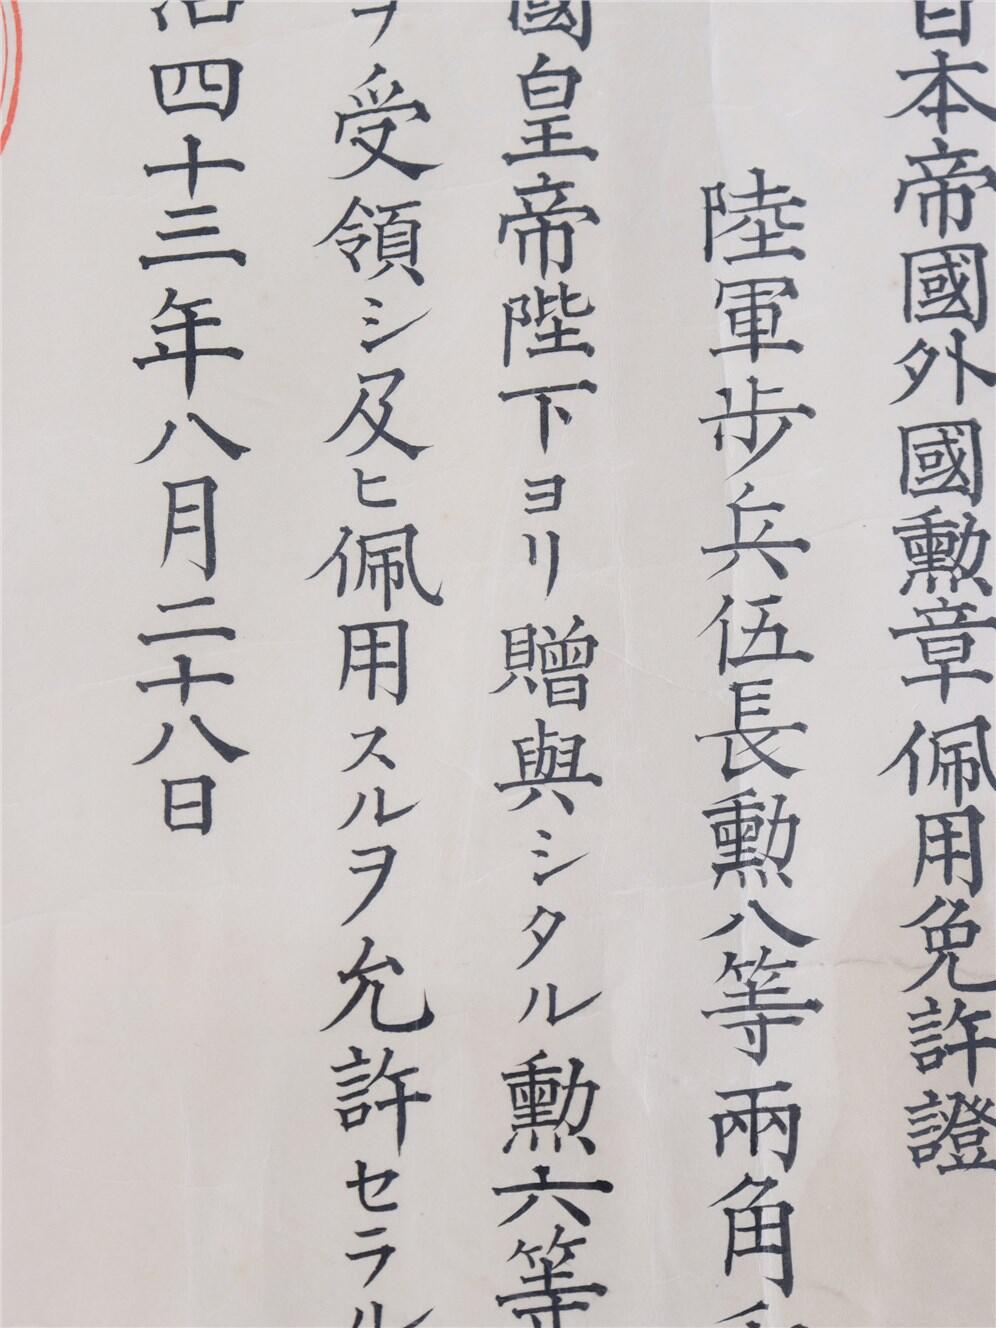 日本帝國外國勲章佩用免許證
陸軍歩兵伍長勲八等兩角
國皇帝陛下ヨリ贈與シタル勲六等
ヲ受領シ及ヒ佩用スルヲ允許セラル
治四十三年八月二十八日